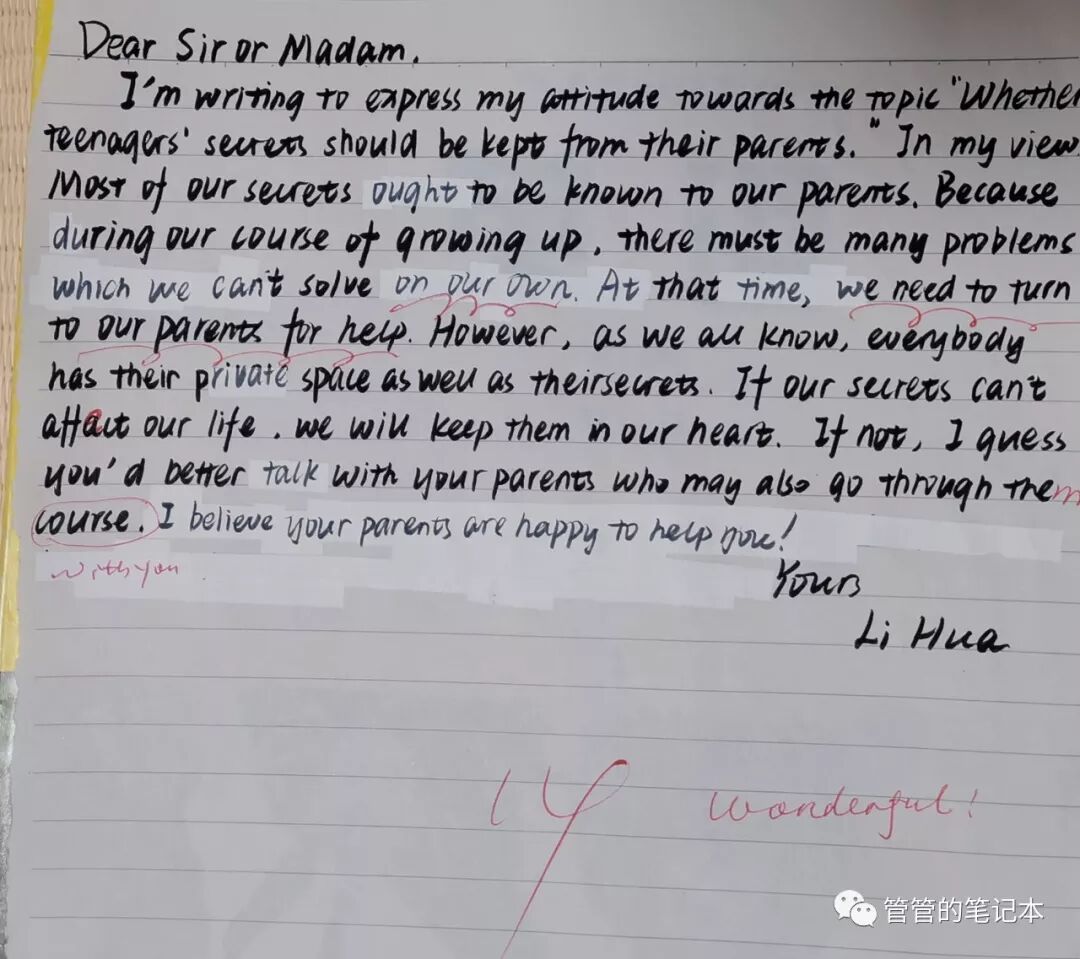 Dear Sir or Madam,
I'm writing to express my attitude towards the topic "Whether
teenagers' secrets should be kept from their parents." In my view,
Most of our secrets ought to be known to our parents. Because
during our course of growing up, there must be many problems
which we can't solve on our own. At that time, we need to turn
to our parents for help. However, as we all know, everybody
has their private space as well as their secrets. If our secrets can't
affact our life, we will keep them in our heart. If not, I guess
you'd better talk with your parents who may also go through them
course. I believe your parents are happy to help you!
with you
Yours
Li Hua
14 wonderful!
管管的笔记本